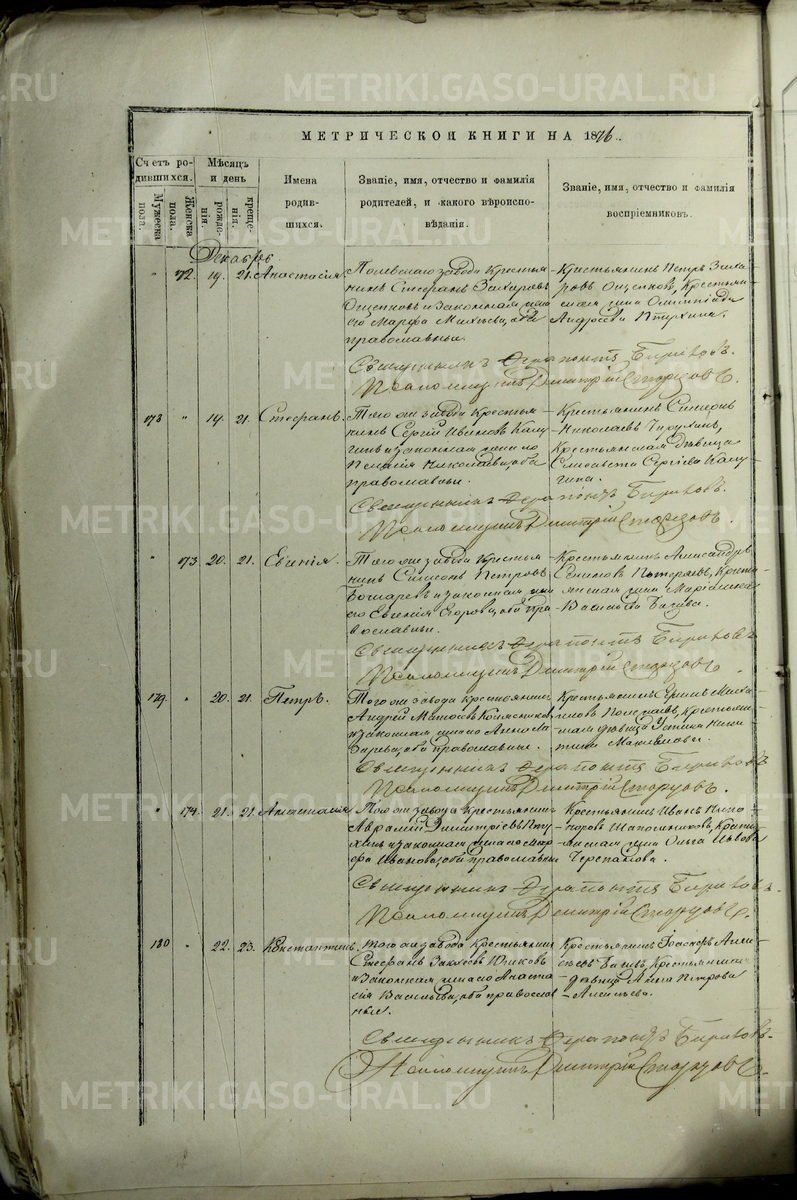 МЕТРИЧЕСКОЙ КНИГИ НА 1876.
Счетъ ро-
дившихся.
Мужеска
пола.
Женска
пола.
Мѣсяцъ
и день
рожде-
нія.
креще-
нія.
Имена
родив-
шихся.
Званіе, имя, отчество и фамилія
родителей, и какого вѣроиспо-
вѣданія.
Званіе, имя, отчество и фамилія
воспріемниковъ.
Декабрь
" 172. 19. 21. Анастасія
Полевскаго завода крестья-
нинъ Стефанъ Захаровъ
и законная жена
его Марфа оба
православные.
Крестьянинъ Петръ Заха-
ровъ Крестьян-
ская жена Олимпіада
Андреева Птухина.
Священникъ Ферапонтъ Бирюковъ.
Псаломщикъ Димитрій Старцовъ.
178 " 19. 21. Стефанъ.
Того же завода крестья-
нинъ Сергій Ивановъ Калу-
гинъ и законная жена его
Пелагія Николаева, оба
православные.
Крестьянинъ Симеонъ
Николаевъ
Крестьянская дѣвица
Елисавета Сергіева Калу-
гина.
Священникъ Ферапонтъ Бирюковъ.
Псаломщикъ Димитрій Старцовъ.
" 173 20. 21. Евгенія.
Того же завода крестья-
нинъ Симеонъ Петровъ
и законная жена
его Евгенія Егорова, оба пра-
вославные.
Крестьянинъ Александръ
Крестья-
янская жена
Василіева
Священникъ Ферапонтъ Бирюковъ
Псаломщикъ Димитрій Старцовъ.
179. " 20. 21. Петръ.
Того же завода крестьянинъ
Андрей Матѳеевъ
и законная жена его Анна Ла-
зарева, оба православные.
Крестьянинъ
Крестьян-
ская дѣвица Устинія Ники-
тина
Священникъ Ферапонтъ Бирюковъ
Псаломщикъ Димитрій Старцовъ.
" 174. 21. 21. Анастасія
Того же завода крестьянинъ
Аврамій Димитріевъ Пту-
хинъ и законная жена его Мар-
фа Иванова, оба православные
Крестьянинъ Иванъ Ники-
форовъ Шапошниковъ, Крестья-
янская жена Ольга Львова
Черепанова.
Священникъ Ферапонтъ Бирюковъ.
Псаломщикъ Димитрій Старцовъ.
180 " 22. 23. Константинъ.
Того же завода крестьянинъ
Стефанъ
и законная жена его Анаста-
сія Василіева, оба православ-
ные.
Крестьянинъ Іоасафъ Алек-
сѣевъ Крестьянская
дѣвица Анна Петрова
Священникъ Ферапонтъ Бирюковъ.
Псаломщикъ Димитрій Старцовъ.
METRIKI.GASO-URAL.RU